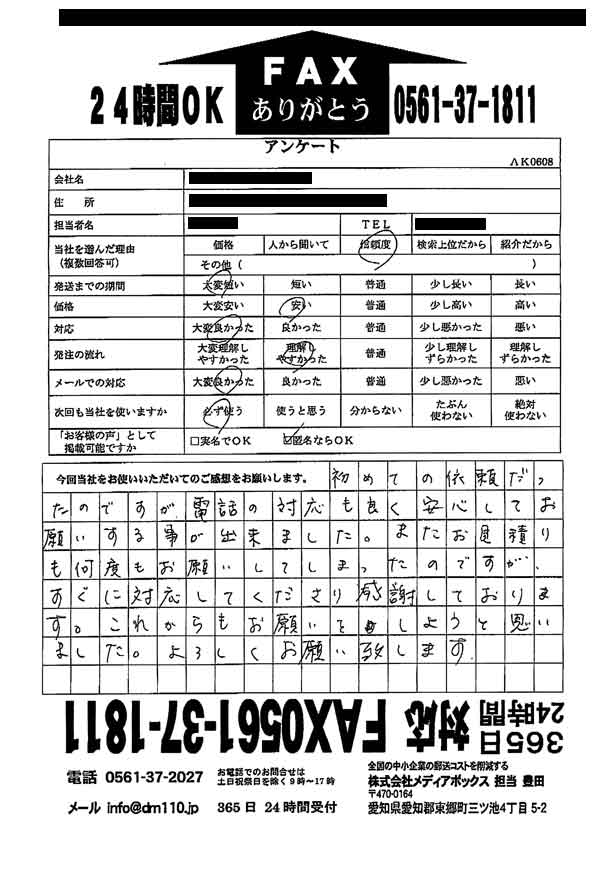 24時間OK FAX ありがとう 0561-37-1811
アンケート
AK0608
会社名
住 所
担当者名 TEL
当社を選んだ理由（複数回答可） 価格 人から聞いて 信頼度 検索上位だから 紹介だから
その他（ ）
発送までの期間 大変短い 短い 普通 少し長い 長い
価格 大変安い 安い 普通 少し高い 高い
対応 大変良かった 良かった 普通 少し悪かった 悪い
発注の流れ 大変理解しやすかった 理解しやすかった 普通 少し理解しずらかった 理解しずらかった
メールでの対応 大変良かった 良かった 普通 少し悪かった 悪い
次回も当社を使いますか 必ず使う 使うと思う 分からない たぶん使わない 絶対使わない
「お客様の声」として掲載可能ですか □実名でOK ☑匿名ならOK
今回当社をお使いいただいてのご感想をお願いします。 初めての依頼だっ
たのですが、電話の対応も良く安心してお
願いする事が出来ました。またお見積り
も何度もお願いしてしまったのですが、
すぐに対応してくださり感謝しておりま
す。これからもお願いをしようと思い
ました。よろしくお願い致します。
365日 24時間 対応 FAX0561-37-1811
電話 0561-37-2027 お電話でのお問合せは 土日祝祭日を除く9時～17時
メール info@dm110.jp 365日 24時間受付
全国の中小企業の郵送コストを削減する
株式会社メディアボックス 担当 豊田
〒470-0164
愛知県愛知郡東郷町三ツ池4丁目5-2